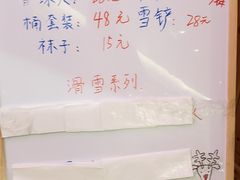 桶套装： 48元 雪铲： 28元
袜子： 15元
滑雪系列